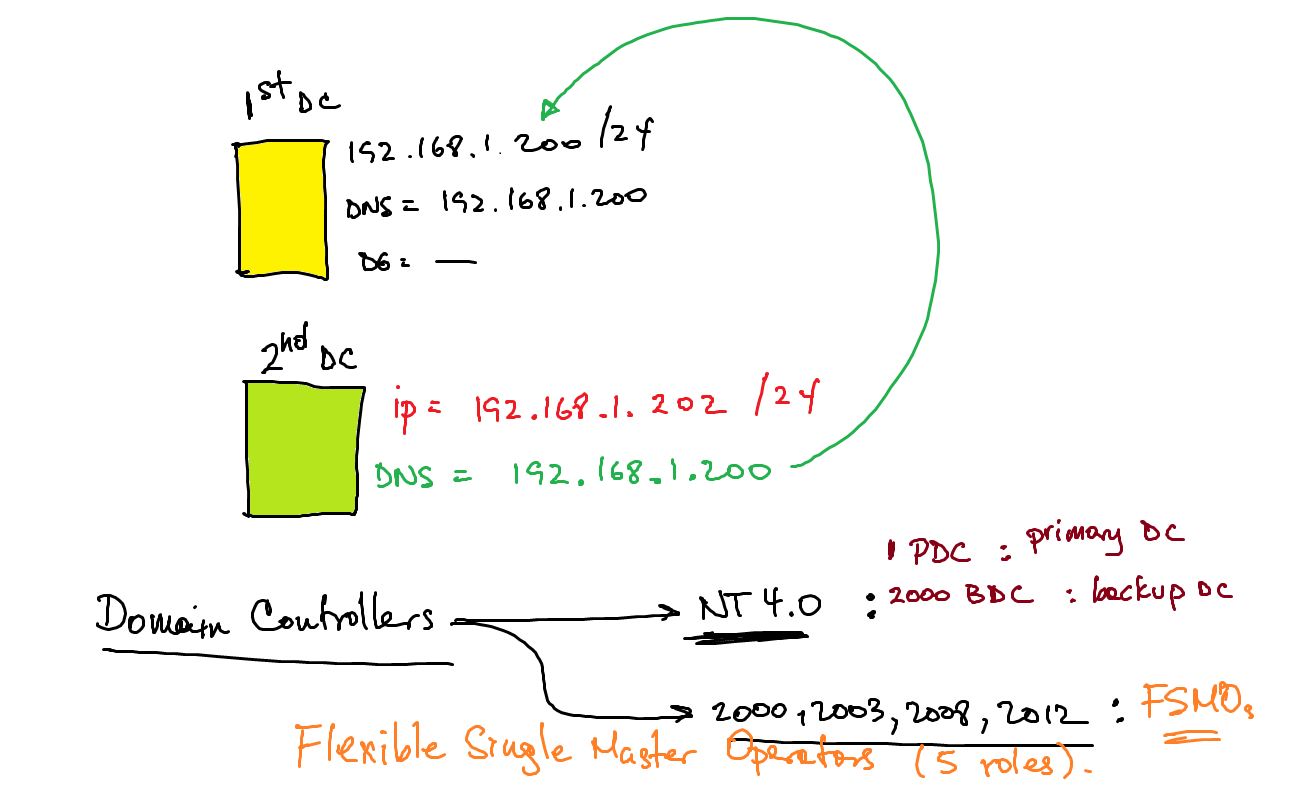 1st DC
192.168.1.200 /24
DNS = 192.168.1.200
DG = —
2nd DC
ip = 192.168.1.202 /24
DNS = 192.168.1.200
1 PDC : primary DC
Domain Controllers → NT 4.0 : 2000 BDC : backup DC
2000, 2003, 2008, 2012 : FSMOs
Flexible Single Master Operators (5 roles).